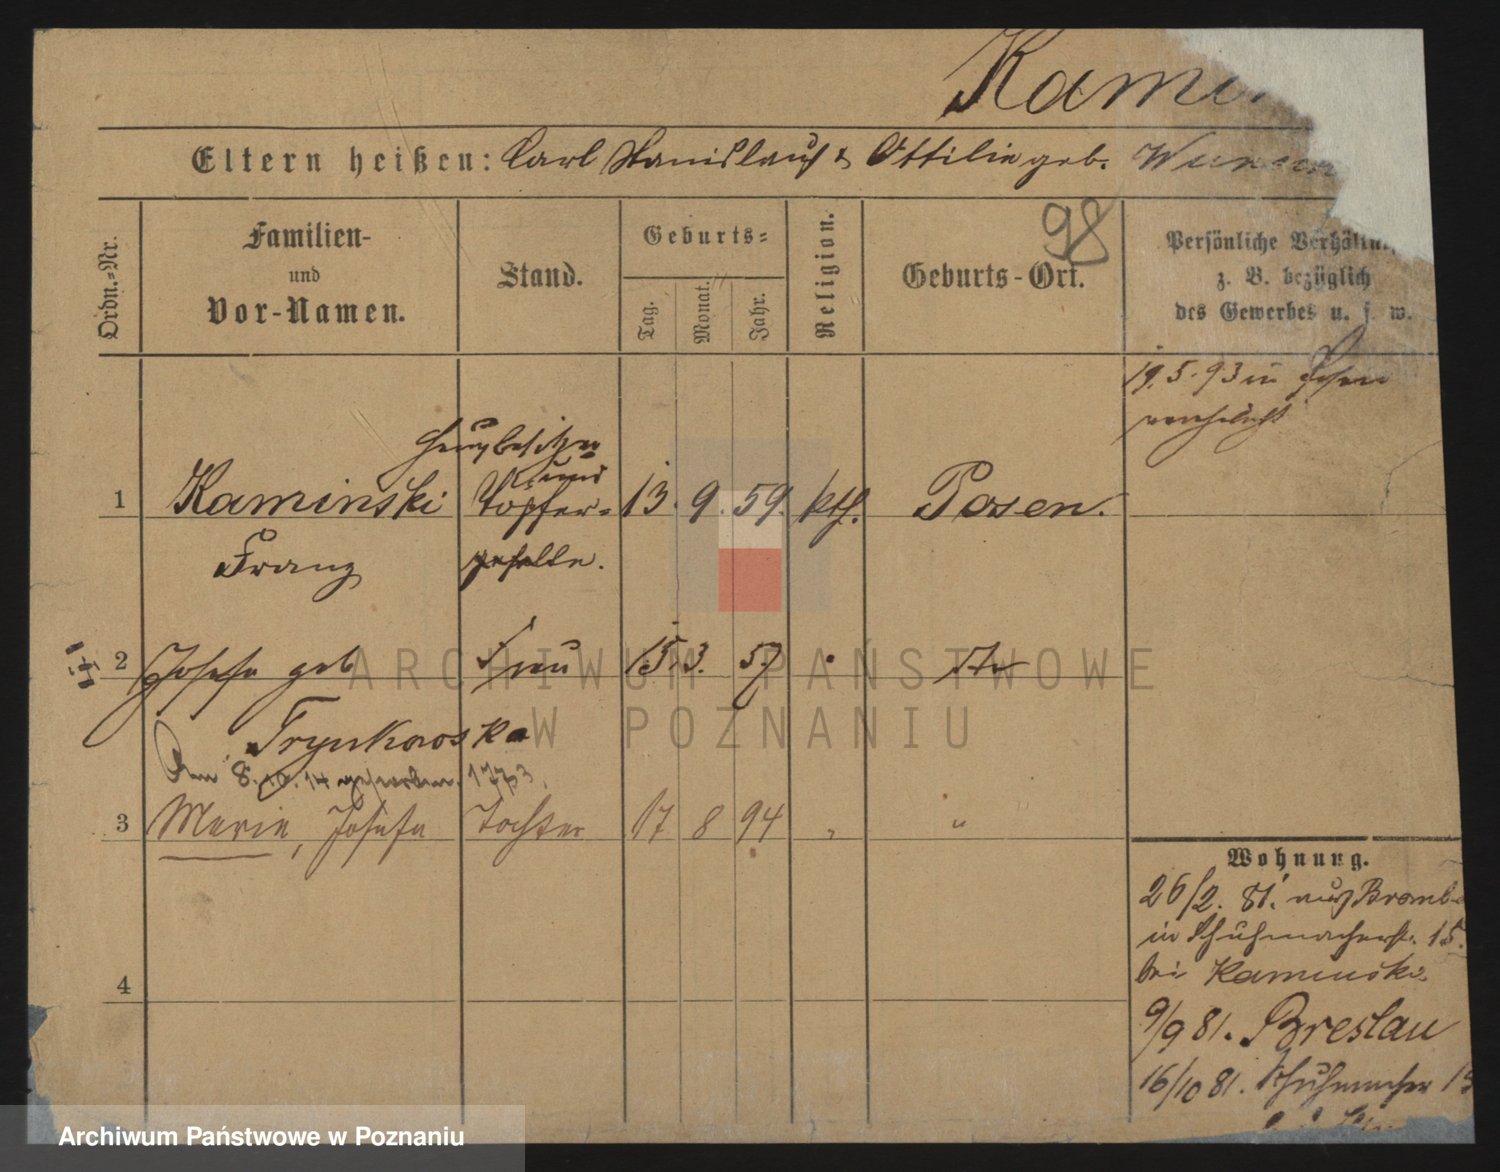 Kamin
Eltern heißen: Carl Stanislaus & Ottilie geb.
98
Ordn.-Nr.
Familien-
und
Vor-Namen.
Stand.
Geburts-
Tag.
Monat.
Jahr.
Religion.
Geburts-Ort.
Persönliche Verhältni
z. B. bezüglich
des Gewerbes u. s. w.
19. 5. 93 in Posen
verehelicht
Hausbesitzer
und
1 Kaminski Töpfer- 13. 9. 59. kth. Posen.
Franz geselle.
2 Josefa geb Frau 15. 3. 57
Trynkowska
Den 8. 10. 14 gestorben. 1773.
3 Marie, Josefa Tochter 17 8 94 " "
4
Wohnung.
26/2. 81. aus Bromb
in Schuhmacherstr. 15.
bei Kaminski
9/9 81. Breslau
16/10 81. Schuhmacher 15
ARCHIWUM PAŃSTWOWE
W POZNANIU
Archiwum Państwowe w Poznaniu